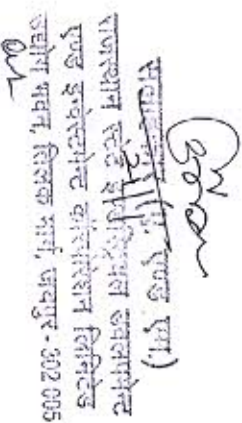 सलाहकार (
एण्ड एम)
राजस्थान स्टेट इण्डस्ट्रियल डवलपमेन्ट
एण्ड इन्वेस्टमेन्ट कॉरपोरेशन लिमिटेड
उद्योग भवन, तिलक मार्ग, जयपुर - 302 005